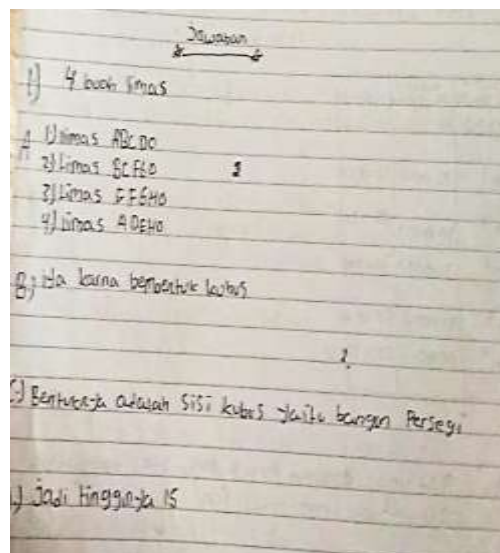 Jawaban
1) 4 buah limas
A 1) limas ABCDO
2) Limas BCFGO 2
3) Limas EFGHO
4) Limas ADEHO
B) ya karna berbentuk kubus
2
C) Bentuknya adalah sisi kubus yaitu bangun Persegi
) jadi tingginya 15